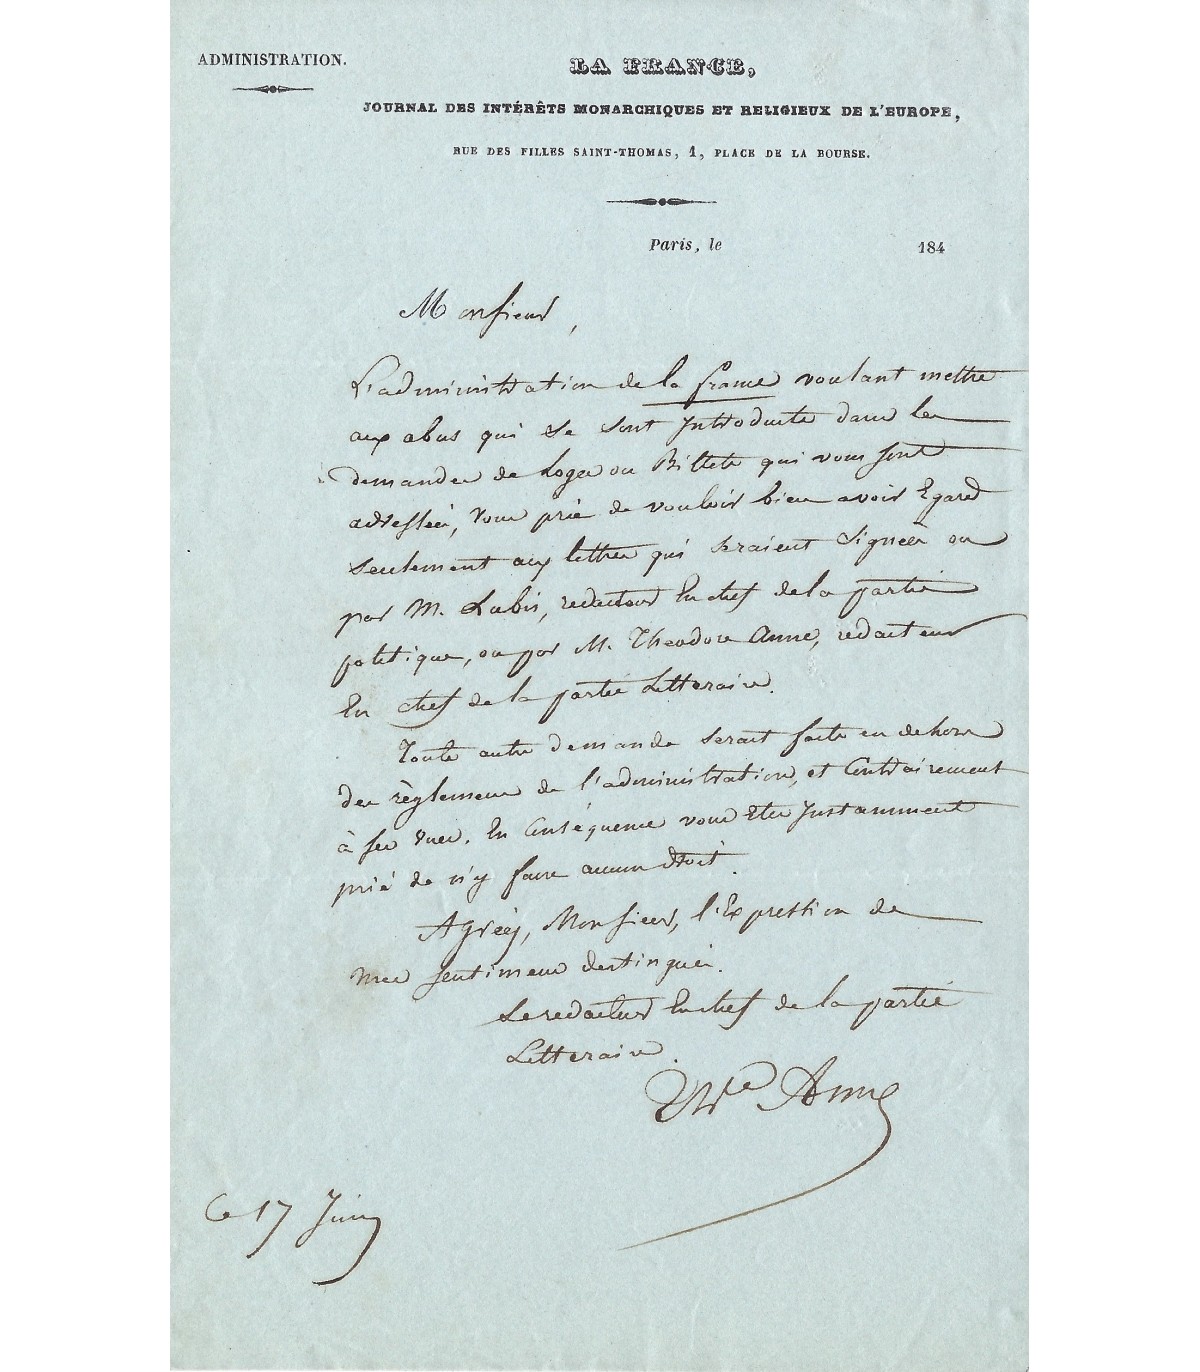 ADMINISTRATION.
LA FRANCE,
JOURNAL DES INTÉRÊTS MONARCHIQUES ET RELIGIEUX DE L'EUROPE,
RUE DES FILLES SAINT-THOMAS, 1, PLACE DE LA BOURSE.
Paris, le 184
Monsieur,
L'administration de la france voulant mettre
aux abus qui se sont Introduits dans les
demandes de Loges ou Billets qui vous sont
adressées, vous prie de vouloir bien avoir Egard
seulement aux lettres qui seraient signées ou
par M. Lubis, redacteur En chef de la partie
politique, ou par M. Théodore Anne, redacteur
En chef de la partie Litteraire.
Toute autre demande serait faite en dehors
des règlemens de l'administration, et Contrairement
à ses vues. En Conséquence vous Etes Instamment
prié de n'y faire aucun droit.
Agréez, Monsieur, l'Expression de
mes sentimens distingués.
Le redacteur En chef de la partie
Litteraire.
Thre Anne
Ce 17 Juin